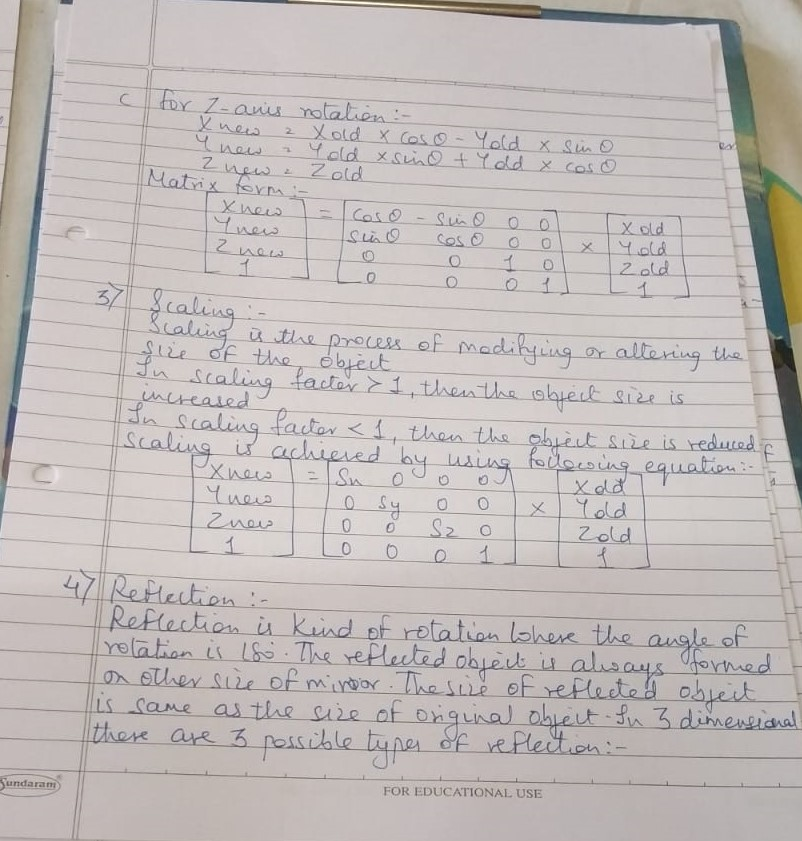 c for Z-axis rotation :-
Xnew = Xold × cosθ - Yold × sinθ
Ynew = Yold × sinθ + Yold × cosθ
Znew = Zold
Matrix form :-
Xnew = cosθ - sinθ 0 0 Xold
Ynew sinθ cosθ 0 0 × Yold
Znew 0 0 1 0 Zold
1 0 0 0 1 1
3) Scaling :-
Scaling is the process of modifying or altering the
size of the object
In scaling factor > 1, then the object size is
increased
In scaling factor < 1, then the object size is reduced
Scaling is achieved by using following equation :-
Xnew = Sx 0 0 0 Xold
Ynew 0 Sy 0 0 × Yold
Znew 0 0 Sz 0 Zold
1 0 0 0 1 1
4) Reflection :-
Reflection is kind of rotation where the angle of
rotation is 180. The reflected object is always formed
on other size of mirror. The size of reflected object
is same as the size of original object. In 3 dimensional
there are 3 possible types of reflection :-
Sundaram®
FOR EDUCATIONAL USE